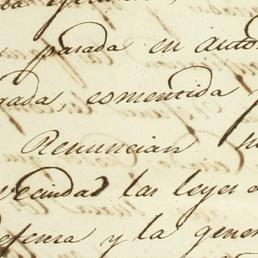 pasada en autor
gada, comentida
Renuncian
vecindad las leyes
efensa y la gener